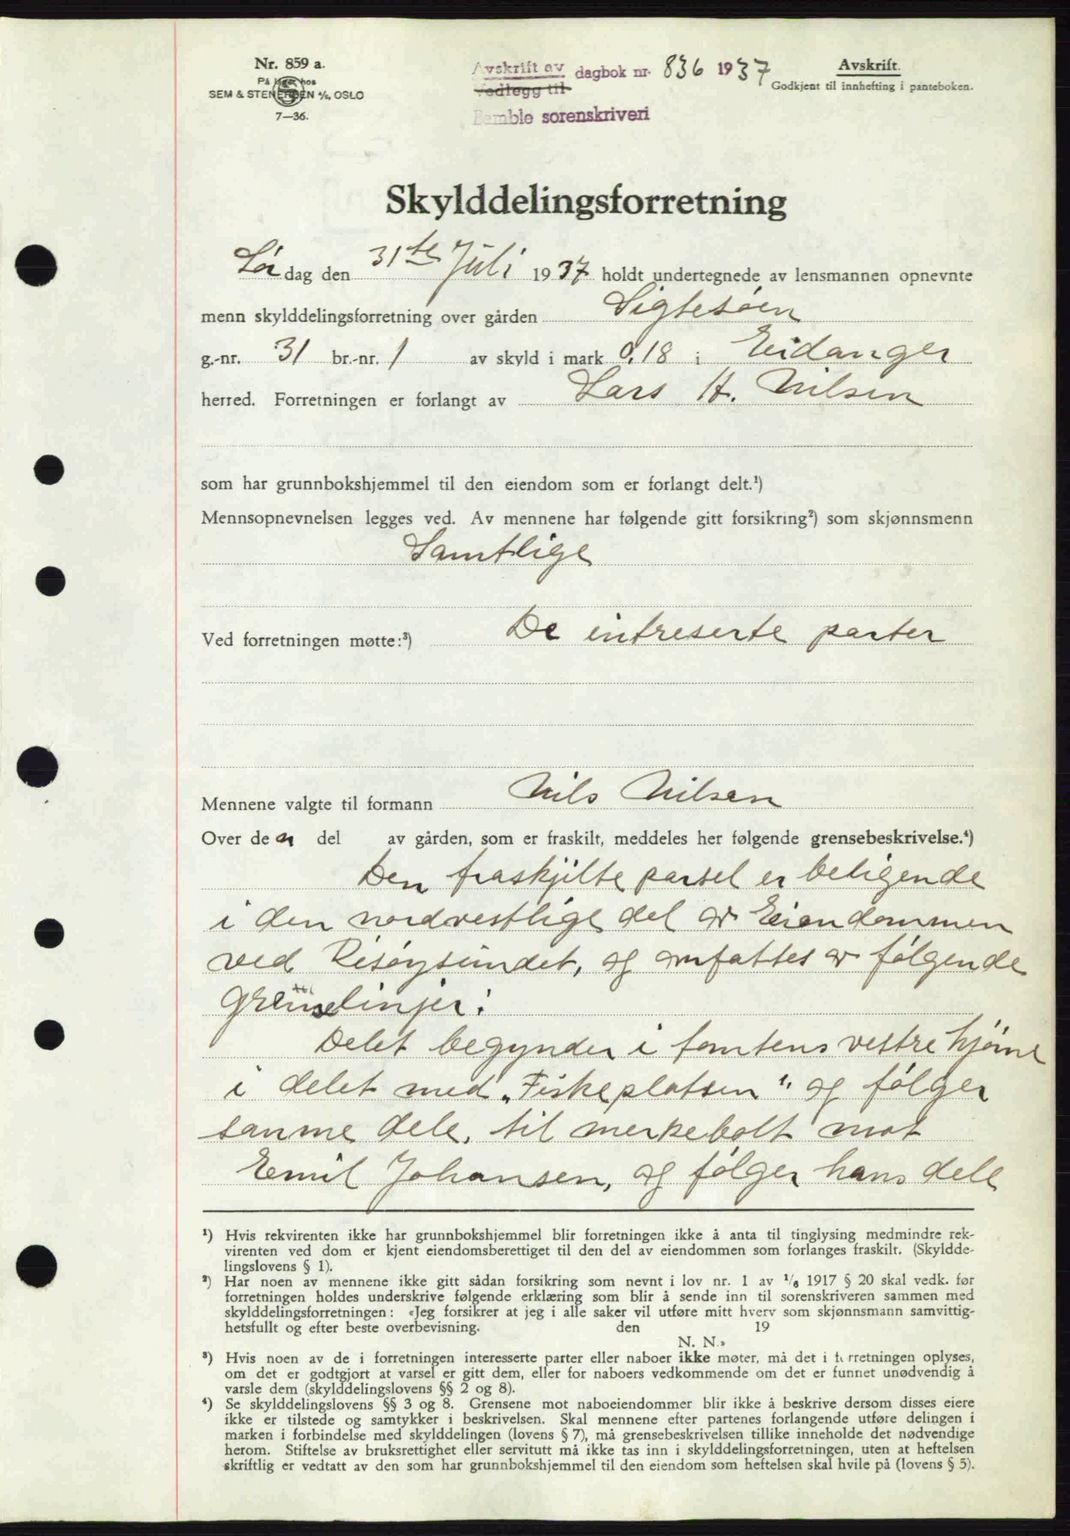 Nr. 859 a.
På lager hos
SEM & STENERSEN A/S, OSLO
7—36.
Avskrift av dagbok nr. 836 1937
vedlegg til
Bamble sorenskriveri
Avskrift.
Godkjent til innhefting i panteboken.
Skylddelingsforretning
Lørdag den 31te Juli 1937 holdt undertegnede av lensmannen opnevnte
menn skylddelingsforretning over gården Sigtesøen
g.-nr. 31 br.-nr. 1 av skyld i mark 0,18 i Eidanger
herred. Forretningen er forlangt av Lars H. Nilsen
som har grunnbokshjemmel til den eiendom som er forlangt delt.¹)
Mennsopnevnelsen legges ved. Av mennene har følgende gitt forsikring²) som skjønnsmenn
Samtlige
Ved forretningen møtte:³) De intreserte parter
Mennene valgte til formann Nils Nilsen
Over den del av gården, som er fraskilt, meddeles her følgende grensebeskrivelse.⁴)
Den fraskjilte parsel er beligende
i den nordvestlige del av Eiendommen
ved Risøysundet, og omfattes av følgende
grenselinjer:
Delet begynder i tomtens vestre hjørne
i delet med „Fiskeplatsen", og følger
samme dele, til merkebolt mot
Emil Johansen, og følger hans dele
¹) Hvis rekvirenten ikke har grunnbokshjemmel blir forretningen ikke å anta til tinglysing medmindre rek-
virenten ved dom er kjent eiendomsberettiget til den del av eiendommen som forlanges fraskilt. (Skyldde-
lingslovens § 1).
²) Har noen av mennene ikke gitt sådan forsikring som nevnt i lov nr. 1 av 1/6 1917 § 20 skal vedk. før
forretningen holdes underskrive følgende erklæring som blir å sende inn til sorenskriveren sammen med
skylddelingsforretningen: «Jeg forsikrer at jeg i alle saker vil utføre mitt hverv som skjønnsmann samvittig-
hetsfullt og efter beste overbevisning. den 19
N. N.»
³) Hvis noen av de i forretningen interesserte parter eller naboer ikke møter, må det i forretningen oplyses,
om det er godtgjort at varsel er gitt dem, eller for naboers vedkommende om det er funnet unødvendig å
varsle dem (skylddelingslovens §§ 2 og 8).
⁴) Se skylddelingslovens §§ 3 og 8. Grensene mot naboeiendommer blir ikke å beskrive dersom disses eiere
ikke er tilstede og samtykker i beskrivelsen. Skal mennene efter partenes forlangende utføre delingen i
marken i forbindelse med skylddelingen (lovens § 7), må grensebeskrivelsen tillike inneholde det nødvendige
herom. Stiftelse av bruksrettighet eller servitutt må ikke tas inn i skylddelingsforretningen, uten at heftelsen
skriftlig er vedtatt av den som har grunnbokshjemmel til den eiendom som heftelsen skal hvile på (lovens § 5).